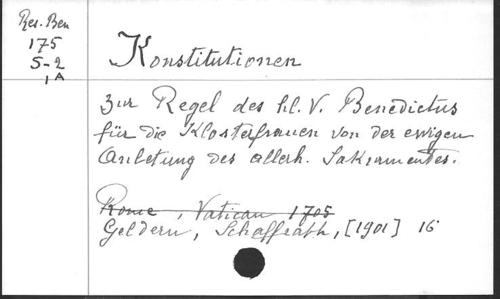 Res. Ben
175
S-2
1A
Konstitutionen
zur Regel des hl. V. Benedictus
für die Klosterfrauen von der ewigen
Anbetung des allerh. Sakramentes.
Rome, Vatican 1705
Geldern, Schaffrath, [1901] 16